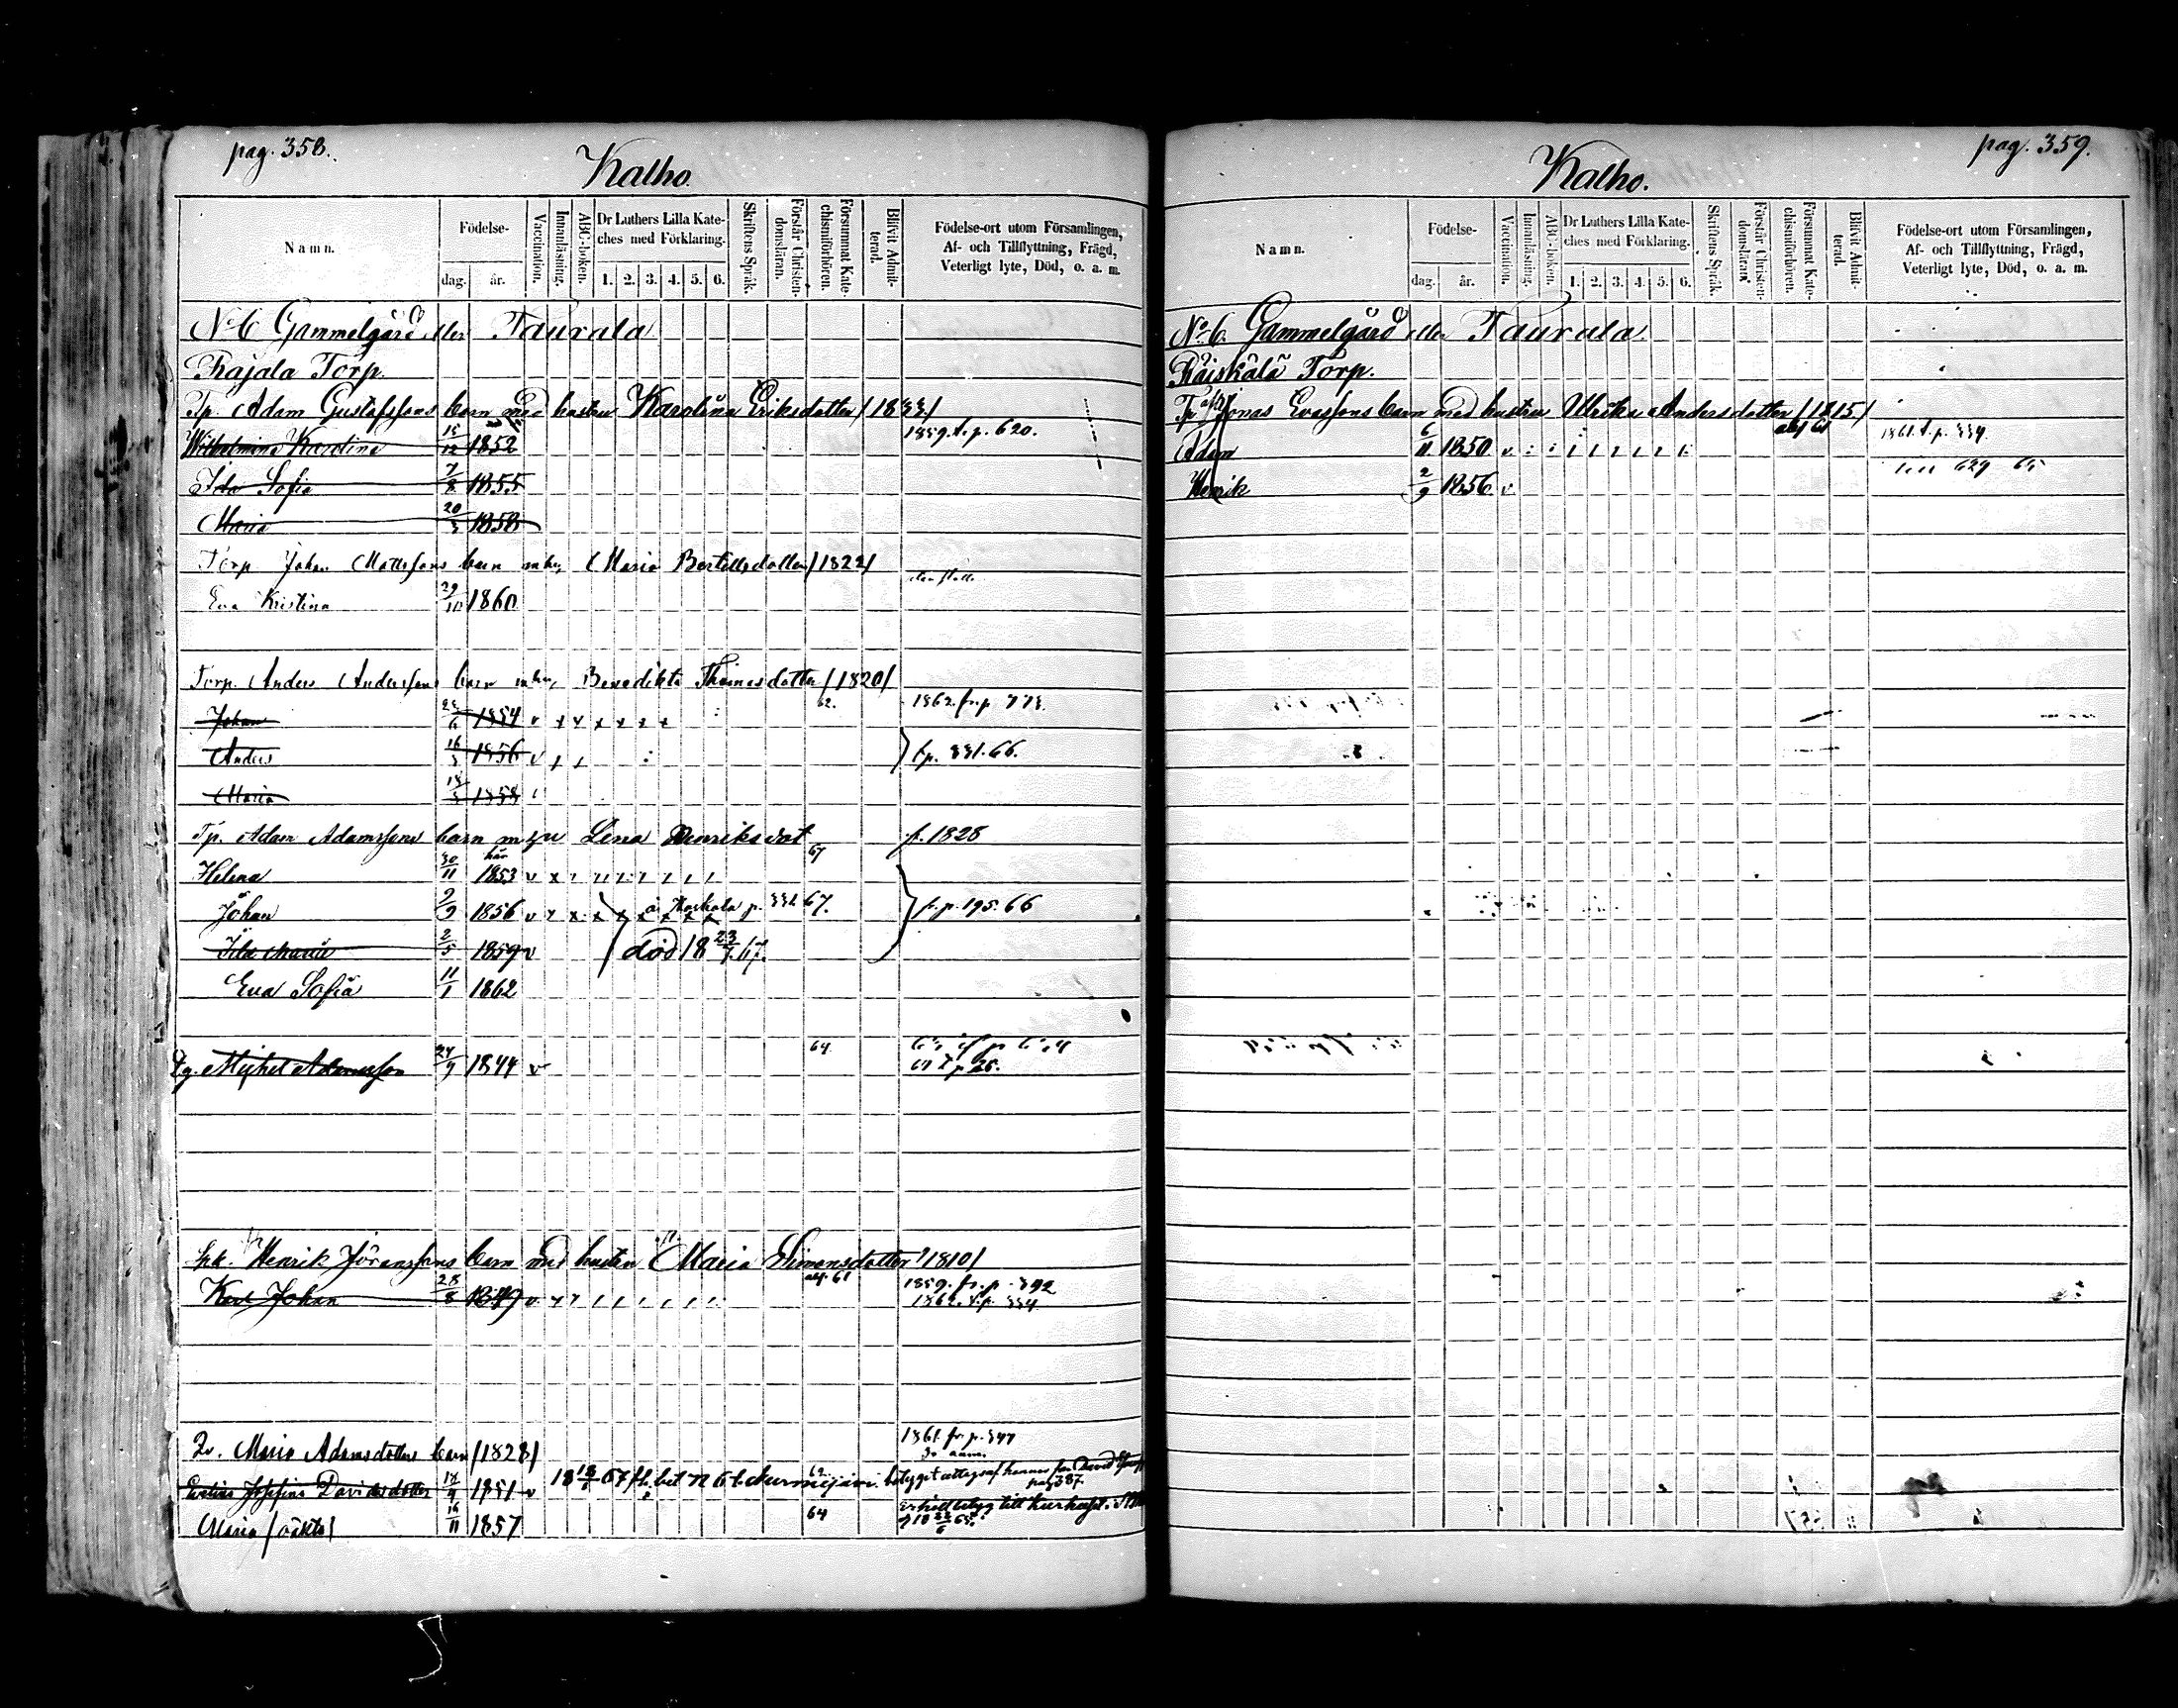 pag. 358.
Kalho.
Namn.
Födelse-
dag.
år.
Vaccination.
Innanläsning.
ABC-boken.
Dr Luthers Lilla Kate-
ches med Förklaring.
1. 2. 3. 4. 5. 6.
Skriftens Språk.
Förstår Christen-
domsläran.
Försummat Kate-
chismiförhören.
Blifvit Admit-
terad.
Födelse-ort utom Församlingen,
Af- och Tillflyttning, Frägd,
Veterligt lyte, Död, o. a. m.
No 6 Gammelgård eller Taurala
Rajala Torp.
Tp. Adam Gustafssons barn med hustru Karolina Eriksdotter /1833/
Wilhelmina Karolina 15/12 1852 1859. t. p. 620.
Ida Sofia 7/8 1855
Maria 20/3 1858
Torp Johan Mattssons barn m hu, Maria Bertilsdotter /1822/
Eva Kristina 29/10 1860
Torp. Anders Anderssons barn m hu, Benedikta Thomasdotter /1820/
Johan 1854 v 62. 1862. fr. p 773.
Anders 16/3 1856 v t p. 331. 66.
Maria 18/3 1858
Tp. Adam Adamssons barn m hu Lena Henriksdot f. 1828
Helena 30/11 1853 v 67
Johan 9/9 1856 v p. 331 67. f. p. 195. 66
Ida Maria 2/5 1859 v död 18 23/7 67.
Eva Sofia 11/1 1862
Dg. Michel Adamsson 24/9 1844 v 64. t p 26.
Henrik Jöranssons barn med hustru Maria Simonsdotter /1810/
Karl Johan 28/8 1849 v. adf. 61 1859. fr. p. 392
1862. t. p. 334
1861. fr. p. 347
Maria Adamsdotters barn /1828/
Josefina Davidsdotter 1851 v 62 pag 387.
Maria /oäkta/ 16/11 1857 64
pag. 359.
Kalho.
Namn.
Födelse-
dag.
år.
Vaccination.
Innanläsning.
ABC-boken.
Dr Luthers Lilla Kate-
ches med Förklaring.
1. 2. 3. 4. 5. 6.
Skriftens Språk.
Förstår Christen-
domsläran.
Försummat Kate-
chismiförhören.
Blifvit Admit-
terad.
Födelse-ort utom Församlingen,
Af- och Tillflyttning, Frägd,
Veterligt lyte, Död, o. a. m.
No 6. Gammelgård eller Taurala.
Räiskälä Torp.
Tp Jonas Evassons barn med hustru Ulrika Andersdotter /1815/
Adam 6/11 1850 v 61 1861. t. p. 334.
Henrik 2/9 1856 v 629 65